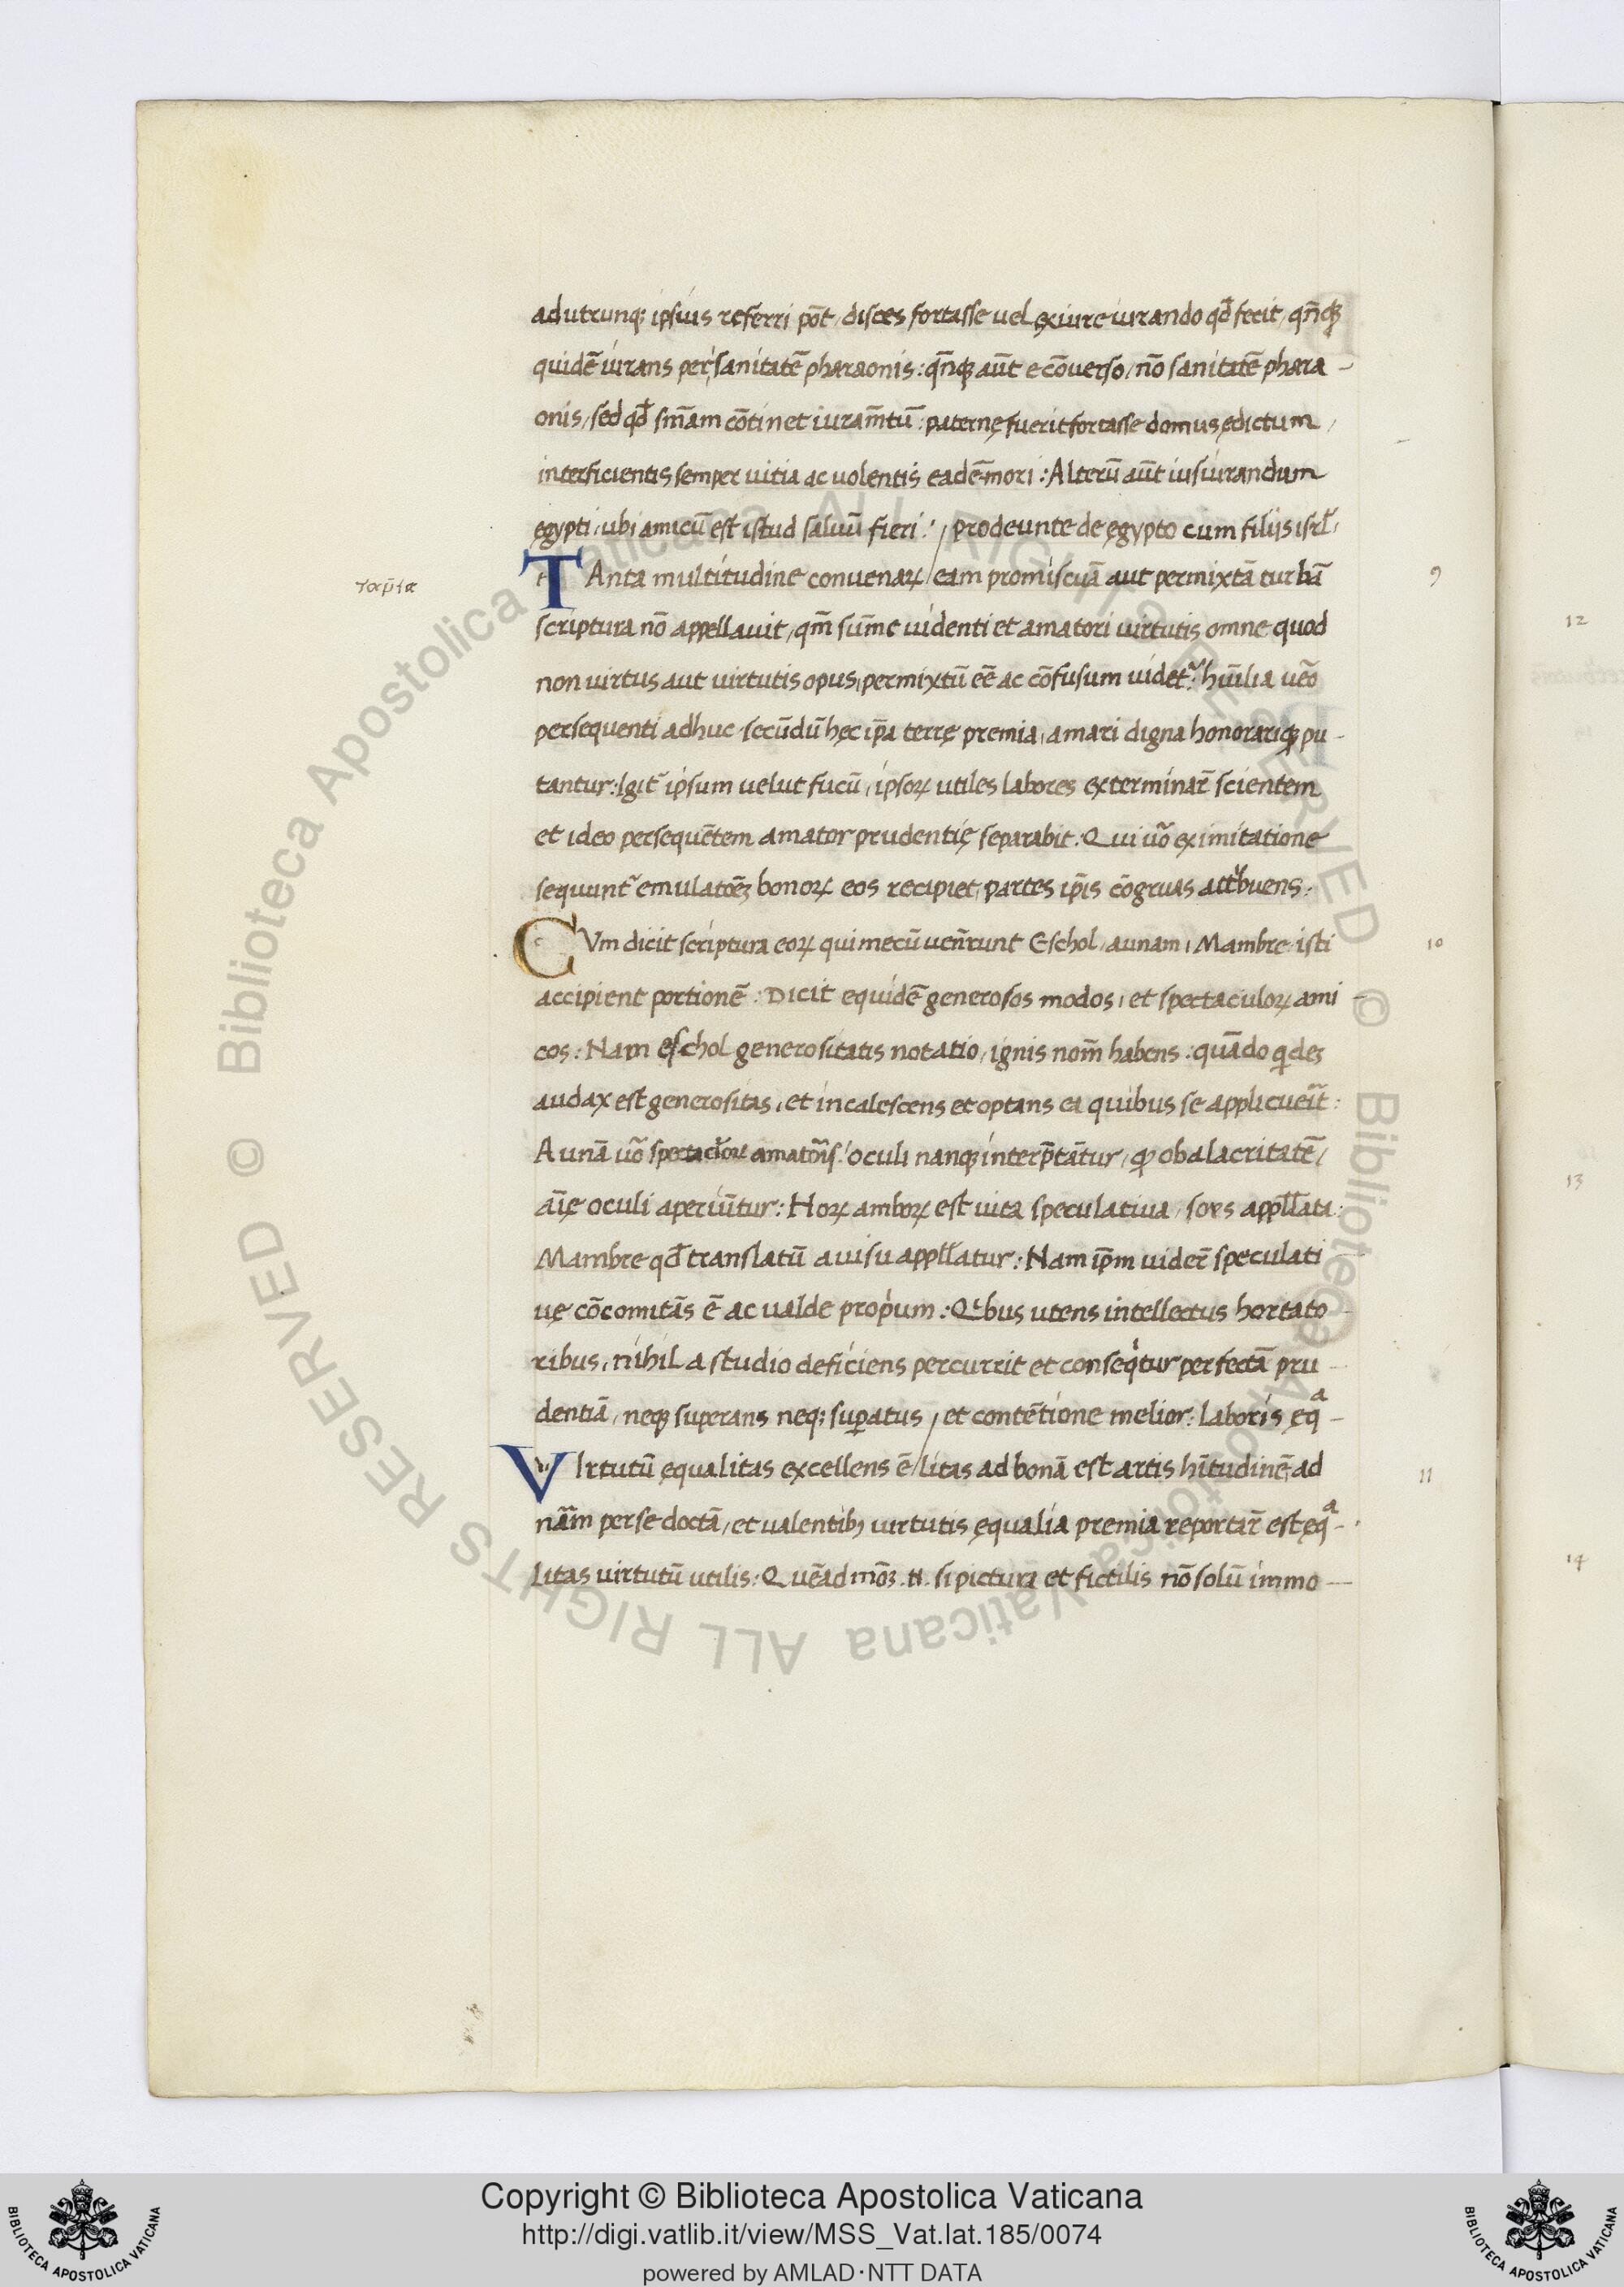 ad utrunq; ipsius referri pōt / disces fortasse uel ex iure iurando qđ fecit / qn̄q;
quidē iurans per sanitatē pharaonis : qn̄q; aūt e cōuerso / nō sanitatē phara-
onis / sed qđ sm̄am cōtinet iuram̄tū : paternę fuerit fortasse domus ędictum /
interficientis semper uitia ac uolentis eadē mori : Alterū aūt iusiurandum
ęgypti / ubi amicū est istud saluū fieri : / prodeunte de ęgypto cum filijs isrł /
TAnta multitudine conuenaꝝ / eam promiscuā aut permixtā turbā
scriptura nō appellauit / qm̄ sūme uidenti et amatori uirtutis omne quod
non uirtus aut uirtutis opus / permixtū eē ac cōfusum uidet̄ : hūilia uēo
persequenti adhuc secūdū hęc ip̄a terrę premia / amari digna honorariq; pu-
tantur : Igit̄ ipsum uelut fucū / ipsoꝝ utiles labores exterminar̄ scientem
et ideo persequētem amator prudentię separabit . Qui uō ex imitatione
sequunt̄ emulatōeꝫ bonoꝝ eos recipiet / partes ip̄is cōgruas attbuens :
CVm dicit scriptura eoꝝ qui mecū uen̄runt Eschol / aunam / Mambre / isti
accipient portionē : Dicit equidē generosos modos / et spectaculoꝝ ami-
cos : Nam eschol generositatis notatio / ignis nom̄ habens : quādo qdeꝫ
audax est generositas / et incalescens et optans ea quibus se applicueīt :
Aunā uō spectacłoꝝ amatōis : oculi nanq; interp̄tātur / ꝙ ob alacritatē /
aīę oculi aperiūtur : Hoꝝ amboꝝ est uita speculatiua / sors appłłata :
Mambre qđ translatū a uisu appłłatur : Nam ip̄m uider̄ speculati-
uę cōcomitās ē ac ualde propium : Qbus utens intellectus hortato-
ribus / nihil a studio deficiens percurrit et conseqtur perfectā pru-
dentiā / neq; superans neq; supatus / et contētione melior : Laboris ęqᵃ-
VIrtutū ęqualitas excellens ē / litas ad bonā est artis hītudinē / ad
nām per se doctā / et ualentibꝫ uirtutis ęqualia premia reportar̄ est ęqᵃ-
litas uirtutū utilis : Quēadmōꝫ .n. si pictura et fictilis nō solū immo-
9
10
11
12
13
14
Copyright © Biblioteca Apostolica Vaticana
http://digi.vatlib.it/view/MSS_Vat.lat.185/0074
powered by AMLAD·NTT DATA
BIBLIOTECA APOSTOLICA VATICANA
BIBLIOTECA APOSTOLICA VATICANA
© Biblioteca Apostolica Vaticana ALL RIGHTS RESERVED © Biblioteca Apostolica Vaticana ALL RIGHTS RESERVED